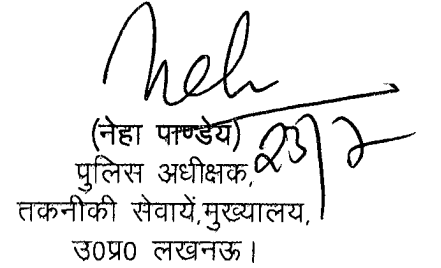 Neh
(नेहा पाण्डेय) 23/7
पुलिस अधीक्षक,
तकनीकी सेवायें,मुख्यालय,
उ0प्र0 लखनऊ।